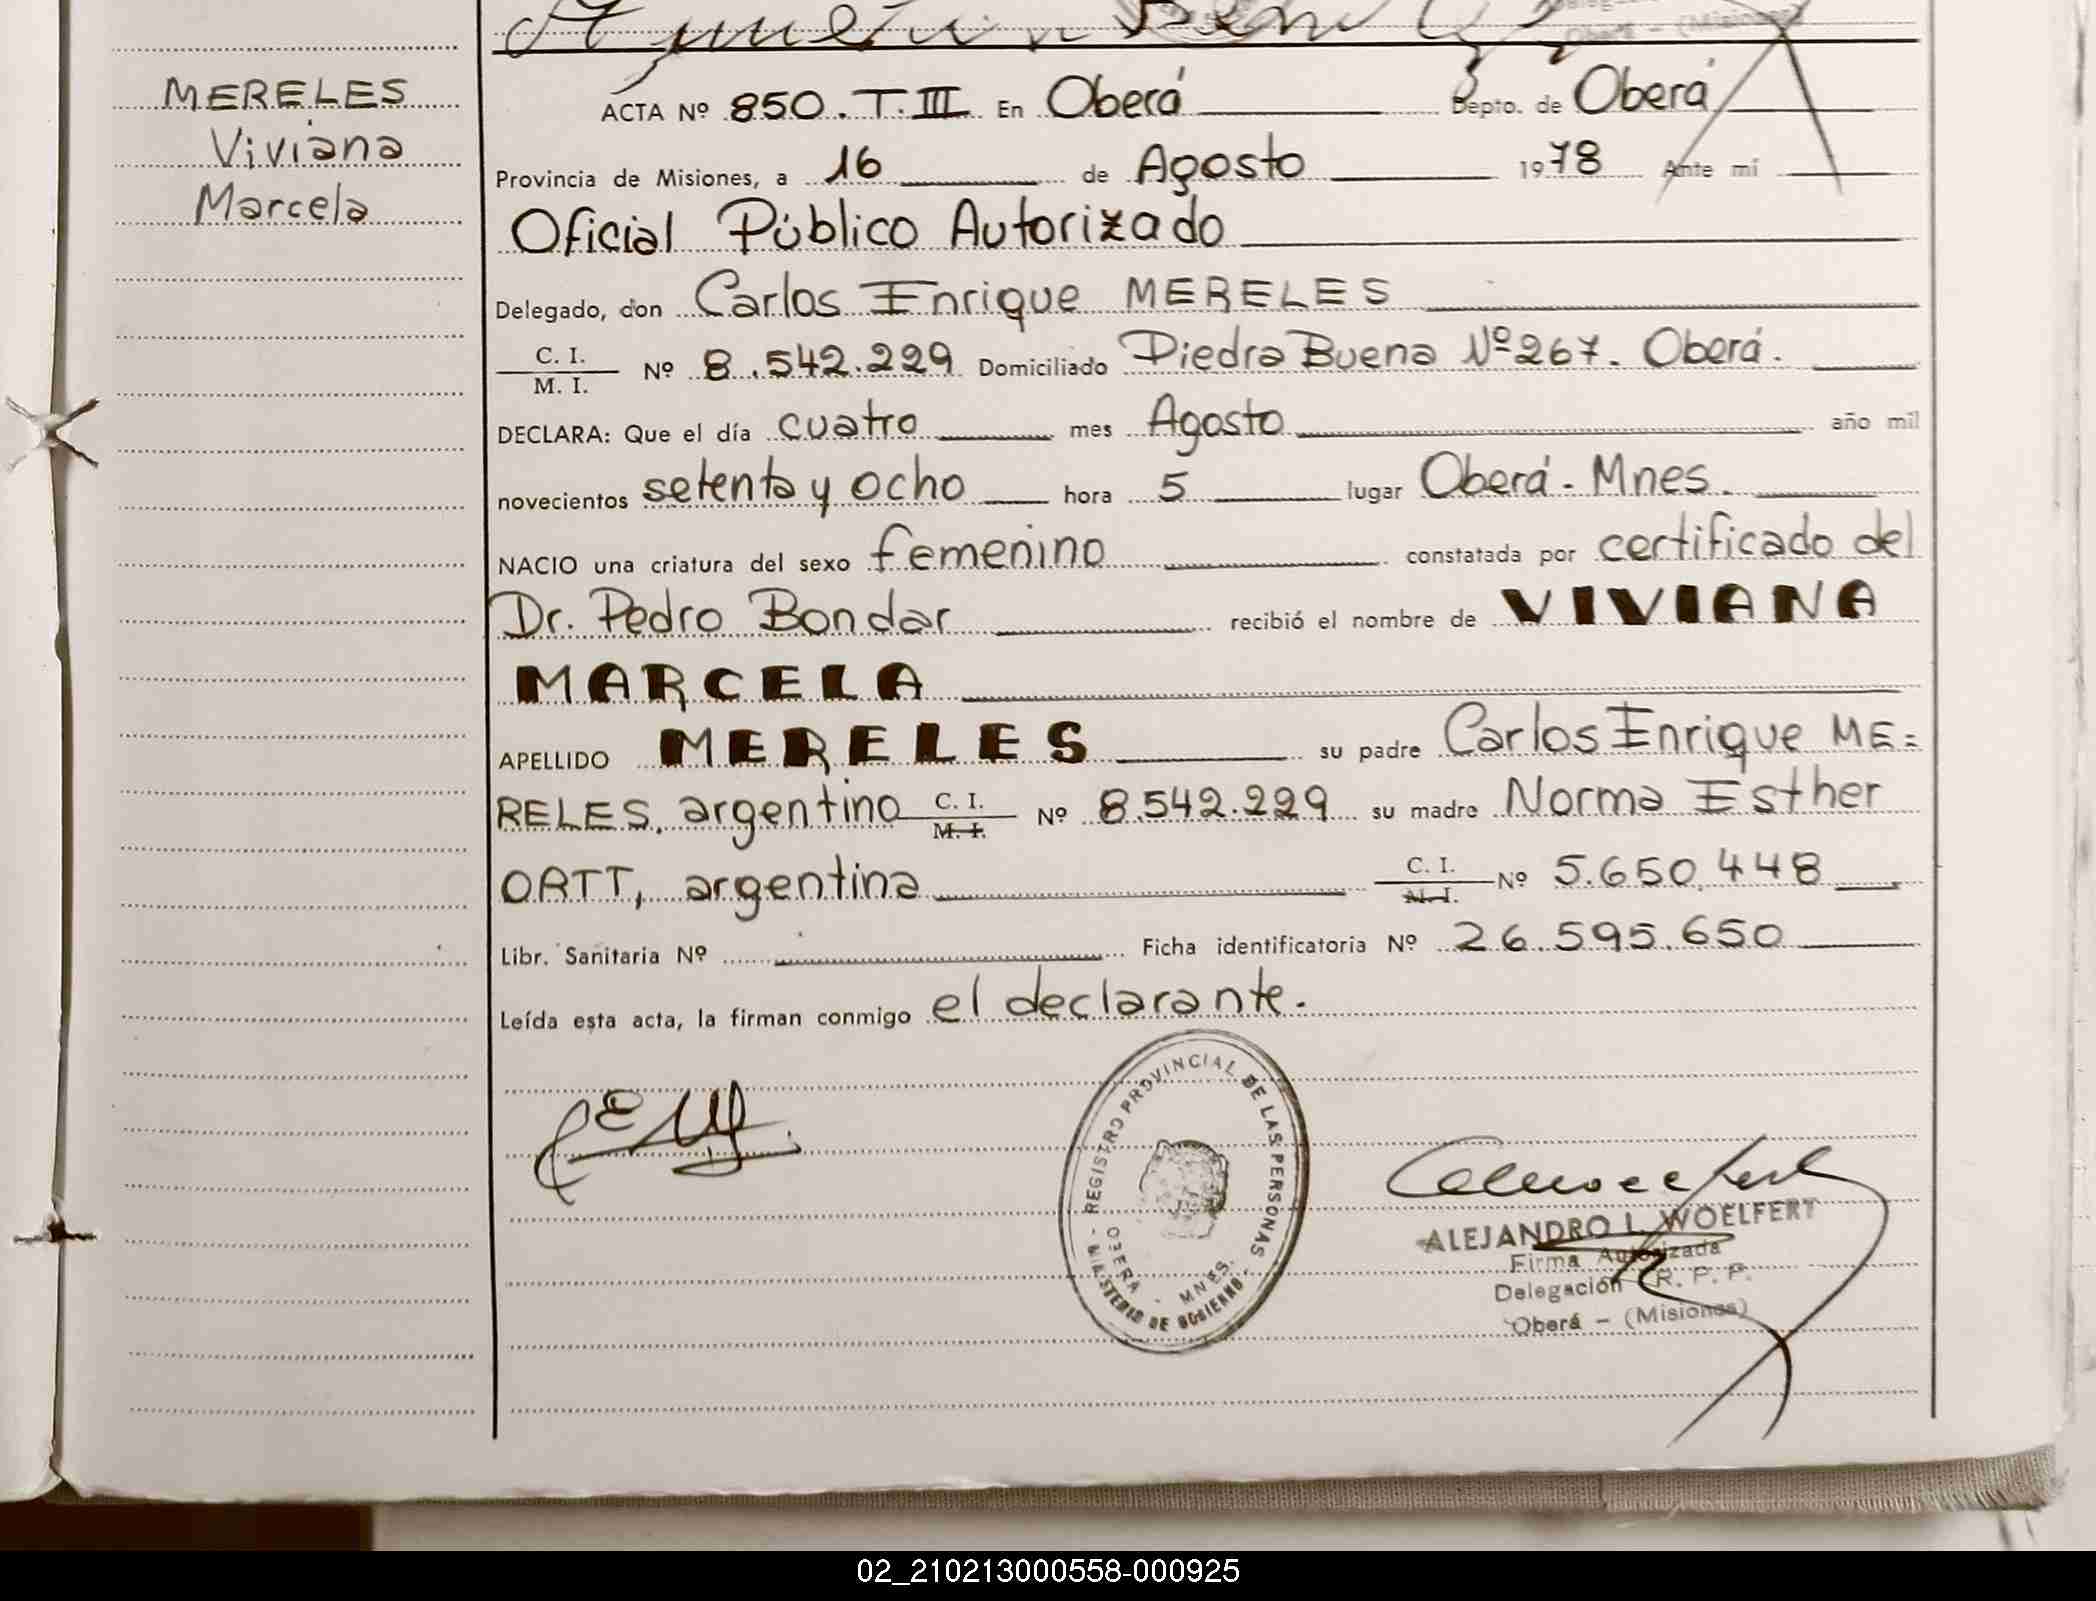 MERELES
Viviana
Marcela
ACTA Nº 850. T. III En Oberá Depto. de Oberá
Provincia de Misiones, a 16 de Agosto 1978 Ante mí
Oficial Público Autorizado
Delegado, don Carlos Enrique MERELES
C. I.
M. I. Nº 8.542.229 Domiciliado Piedra Buena Nº 267. Oberá.
DECLARA: Que el día cuatro mes Agosto año mil
novecientos setenta y ocho hora 5 lugar Oberá - Mnes.
NACIO una criatura del sexo femenino constatada por certificado del
Dr. Pedro Bondar recibió el nombre de VIVIANA
MARCELA
APELLIDO MERELES su padre Carlos Enrique ME=
RELES, argentino C. I. M. I. Nº 8.542.229 su madre Norma Esther
ORTT, argentina C. I. M. I. Nº 5.650.448
Libr. Sanitaria Nº Ficha identificatoria Nº 26.595.650
Leída esta acta, la firman conmigo el declarante.
- REGISTRO PROVINCIAL DE LAS PERSONAS -
OBERÁ - MNES.
MINISTERIO DE GOBIERNO
ALEJANDRO L. WOELFERT
Firma Autorizada
Delegación R. P. P.
Oberá - (Misiones)
02_210213000558-000925